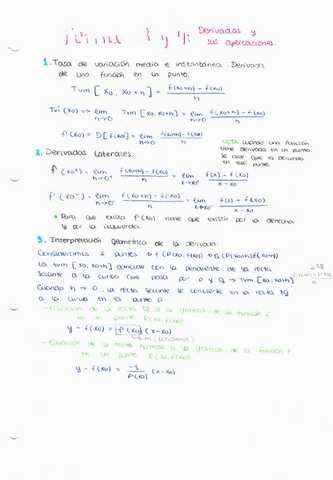 Tema 3 y 4: Derivadas y
sus aplicaciones.
1. Tasa de variación media e instantánea. Derivada
de una función en un punto.
Tvm [x₀, x₀+h] = f(x₀+h) - f(x₀) / h
Tvi (x₀) => lim h→0 Tvm [x₀, x₀+h] = lim h→0 f(x₀+h) - f(x₀) / h
f'(x₀) = D[f(x₀)] = lim h→0 f(x₀+h) - f(x₀) / h
NOTA: cuando una función
tiene derivada en un punto
se dice que es derivable
en ese punto.
2. Derivadas laterales:
f'(x₀⁺) = lim h→0⁺ f(x₀+h) - f(x₀) / h = lim x→x₀⁺ f(x) - f(x₀) / x - x₀
f'(x₀⁻) = lim h→0⁻ f(x₀+h) - f(x₀) / h = lim x→x₀⁻ f(x) - f(x₀) / x - x₀
Para que exista f'(x₀) tiene que existir por la derecha
y por la izquierda.
3. Interpretación geométrica de la derivada:
Consideramos 2 puntos
la tvm [x₀, x₀+h] coincide con la pendiente de la recta
secante a la curva que pasa por P y Q → Tvm [x₀, x₀+h]
Cuando h → 0, la recta secante se convierte en la recta tg
a la curva en el punto P
- Ecuación de la recta tg a la gráfica de la función f
en un punto P(x₀, f(x₀))
y - f(x₀) = f'(x₀) (x - x₀)
m (pendiente)
- Ecuación de la recta normal a la gráfica de la función f
en un punto P(x₀, f(x₀))
y - f(x₀) = -1 / f'(x₀) (x - x₀)